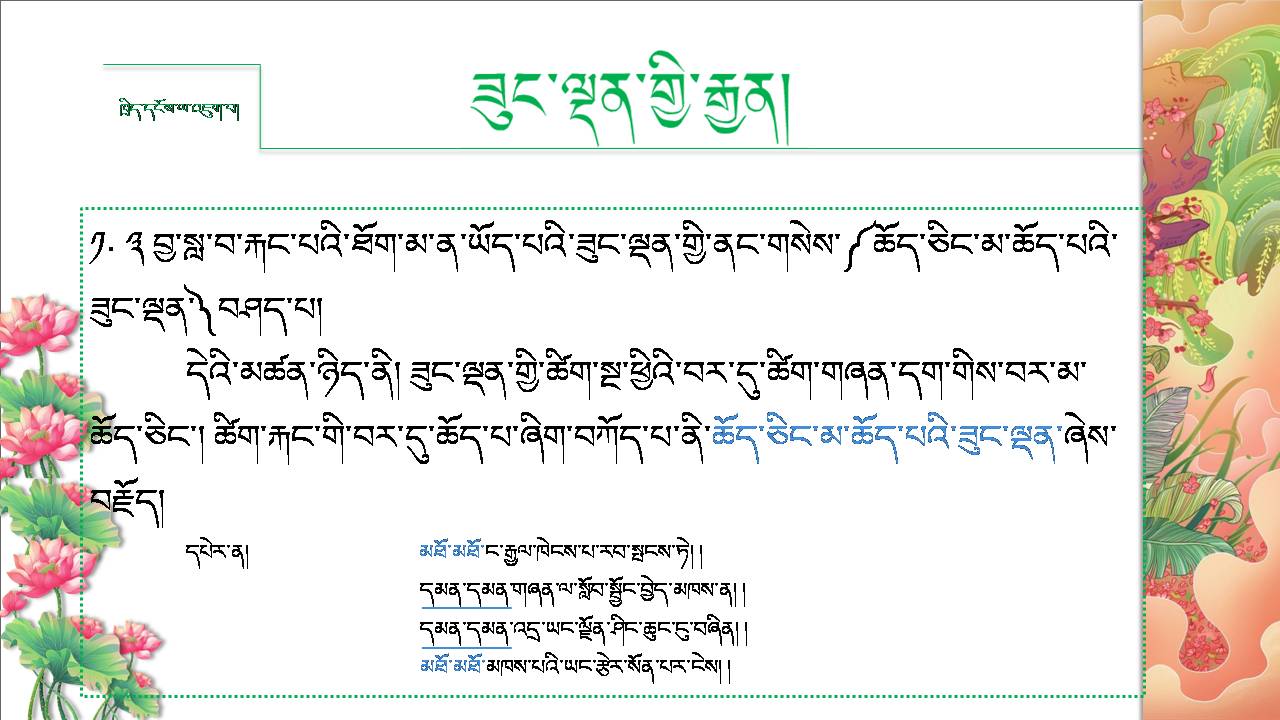 ཟུང་ལྡན་གྱི་རྒྱན།
ཁྲིད་དངོས་ལ་འཇུག་པ།
༡. ༣ བྱ་སླ་བ་རྐང་པའི་ཐོག་མ་ན་ཡོད་པའི་ཟུང་ལྡན་གྱི་ནང་གསེས་༼ཆོད་ཅིང་མ་ཆོད་པའི་
ཟུང་ལྡན་༽བཤད་པ།
དེའི་མཚན་ཉིད་ནི། ཟུང་ལྡན་གྱི་ཚིག་སྔ་ཕྱིའི་བར་དུ་ཚིག་གཞན་དག་གིས་བར་མ་
ཆོད་ཅིང་། ཚིག་རྐང་གི་བར་དུ་ཆོད་པ་ཞིག་བཀོད་པ་ནི་ཆོད་ཅིང་མ་ཆོད་པའི་ཟུང་ལྡན་ཞེས་
བརྗོད།
དཔེར་ན། མཐོ་མཐོ་ང་རྒྱལ་ཁེངས་པ་རབ་སྤངས་ཏེ། །
དམན་དམན་གཞན་ལ་སློབ་སྦྱོང་བྱེད་མཁས་ན། །
དམན་དམན་འདྲ་ཡང་ལྗོན་ཤིང་ཆུང་ངུ་བཞིན། །
མཐོ་མཐོ་མཁས་པའི་ཡང་རྩེར་སོན་པར་ངེས། །